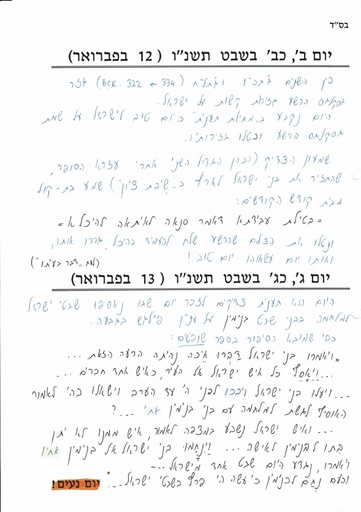 בס"ד
יום ב', כב' בשבט תשנ"ו ( 12 בפברואר)
בין השנים ג'תכ"ו וג'תל"ח (334 - 322 .BCE) גזר
גסקלגס הרשע גזירות קשות על ישראל.
היום נקבע ב"מגילת תענית" כיום טוב לישראל על שמת
גסקלגס הרשע ובטלו גזירותיו.
שמעון הצדיק (הכהן הגדול השני אחרי עזרא הסופר,
שהחזיר את בני ישראל לארץ ב"שיבת ציון") שמע בת-קול
מבית קודש הקודשים:
"בטילת עבידתא דאמר סנאה לאיתאה להיכלא"
ונטלו את הצלם שהרשע שלח להעמיד בהיכל, גררו אותו,
ואותו יום עשאוהו יום טוב!
יום ג', כג' בשבט תשנ"ו ( 13 בפברואר)
היום הוא תענית צדיקים לזכר יום שבו נאספו שבטי ישראל
למלחמה בבני שבט בנימין על ענין פילגש בגבעה.
כפי שמובא הסיפור בספר שופטים:
"ויאמרו בני ישראל דברו איכה נהיתה הרעה הזאת...
...ויאסף כל איש ישראל אל העיר, כאיש אחד חברים...
...ויעלו בני ישראל ויבכו לפני ה' עד הערב וישאלו בה' לאמור
האוסיף לגשת למלחמה עם בני בנימין אחי...?
...ואיש ישראל נשבע במצפה לאמר, איש ממנו לא יתן
בתו לבנימין לאישה... וינחמו בני ישראל אל בנימין אחיו
ויאמרו, נגדע היום שבט אחד מישראל...
והעם נחם לבנימין כי עשה ה' פרץ בשבטי ישראל..."
יום נעים!